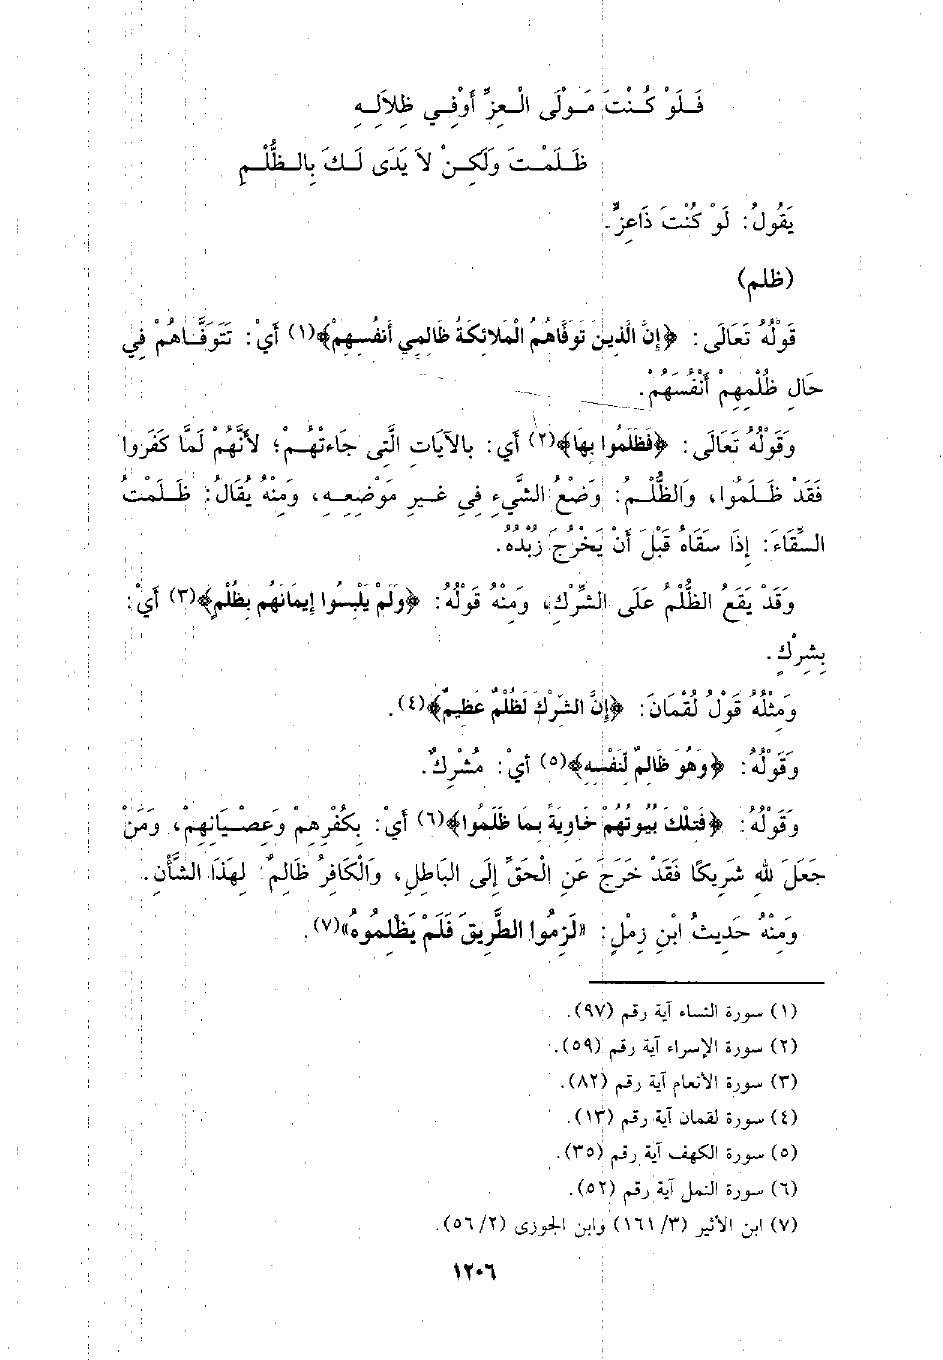 فَلَوْ كُنْتَ مَوْلَى الْعِزِّ أَوْفِي ظِلاَلِهِ
ظَلَمْتَ وَلَكِنْ لاَ يَدَى لَكَ بِالظُّلْمِ
يَقُولُ: لَوْ كُنْتَ ذَاعِزٍّ.
(ظلم)
قَوْلُهُ تَعَالَى: ﴿إِنَّ الَّذِينَ تَوَفَّاهُمُ الْمَلائِكَةُ ظَالِمِي أَنفُسِهِمْ﴾(١) أَيْ: تَتَوَفَّاهُمْ فِي
حَالِ ظُلْمِهِمْ أَنْفُسَهُمْ.
وَقَوْلُهُ تَعَالَى: ﴿فَظَلَمُوا بِهَا﴾(٢) أَي: بالآيَاتِ الَّتِى جَاءَتْهُمْ؛ لأَنَّهُمْ لَمَّا كَفَروا
فَقَدْ ظَلَمُوا، وَالظُّلْمُ: وَضْعُ الشَّيءِ فِي غَيرِ مَوْضِعِهِ، وَمِنْهُ يُقَالُ: ظَلَمْتُ
السِّقَاءَ: إِذَا سَقَاهُ قَبْلَ أَنْ يَخْرُجَ زُبْدُهُ.
وَقَدْ يَقَعُ الظُّلْمُ عَلَى الشِّرْكِ، وَمِنْهُ قَوْلُهُ: ﴿وَلَمْ يَلْبِسُوا إِيمَانَهُم بِظُلْمٍ﴾(٣) أَيْ:
بِشِرْكٍ.
وَمِثْلُهُ قَوْلُ لُقْمَانَ: ﴿إِنَّ الشِّرْكَ لَظُلْمٌ عَظِيمٌ﴾(٤).
وَقَوْلُهُ: ﴿وَهُوَ ظَالِمٌ لِّنَفْسِهِ﴾(٥) أيْ: مُشْرِكٌ.
وَقَوْلُهُ: ﴿فَتِلْكَ بُيُوتُهُمْ خَاوِيَةً بِمَا ظَلَمُوا﴾(٦) أَيْ: بِكُفْرِهِمْ وَعِصْيَانِهِمْ، وَمَنْ
جَعَلَ للهِ شَرِيكًا فَقَدْ خَرَجَ عَنِ الْحَقِّ إِلَى البَاطِلِ، وَالْكَافِرُ ظَالِمٌ لِهَذَا الشَّأْنِ.
وَمِنْهُ حَدِيثُ ابْنِ زِمْلٍ: «لَزِمُوا الطَّرِيقَ فَلَمْ يَظْلِمُوهُ»(٧).
(١) سورة النساء آية رقم (٩٧).
(٢) سورة الإسراء آية رقم (٥٩).
(٣) سورة الأنعام آية رقم (٨٢).
(٤) سورة لقمان آية رقم (١٣).
(٥) سورة الكهف آية رقم (٣٥).
(٦) سورة النمل آية رقم (٥٢).
(٧) ابن الأثير (٣/ ١٦١) وابن الجوزى (٢/ ٥٦).
١٢٠٦